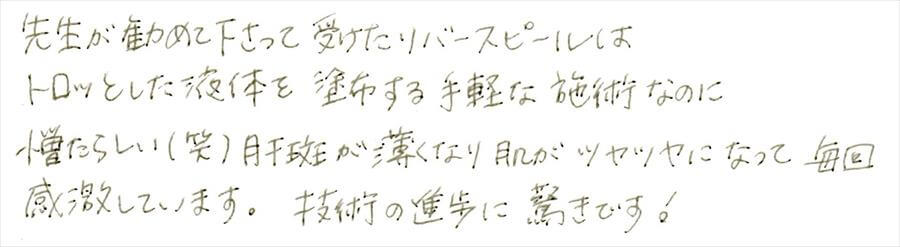 先生が勧めて下さって受けたリバースピールは
トロッとした液体を塗布する手軽な施術なのに
憎たらしい(笑)肝斑が薄くなり肌がツヤツヤになって毎回
感激しています。技術の進歩に驚きです!